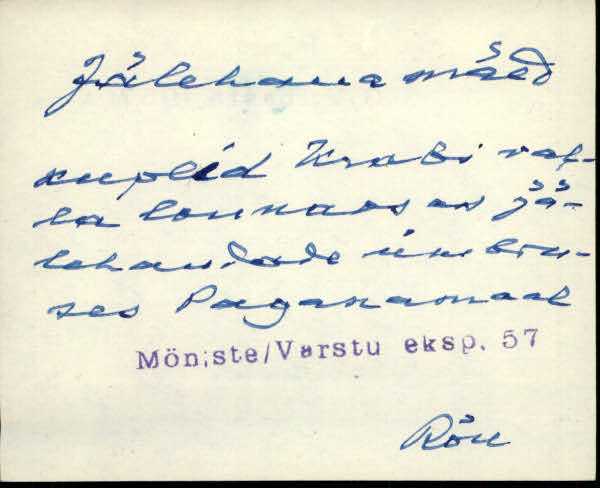 Jälehaua mäed
kuplid Krabi val-
la lounaos as jä-
lehaudade ümbru-
ses Paganamaal
Mön;ste/Varstu eksp. 57
Rõu